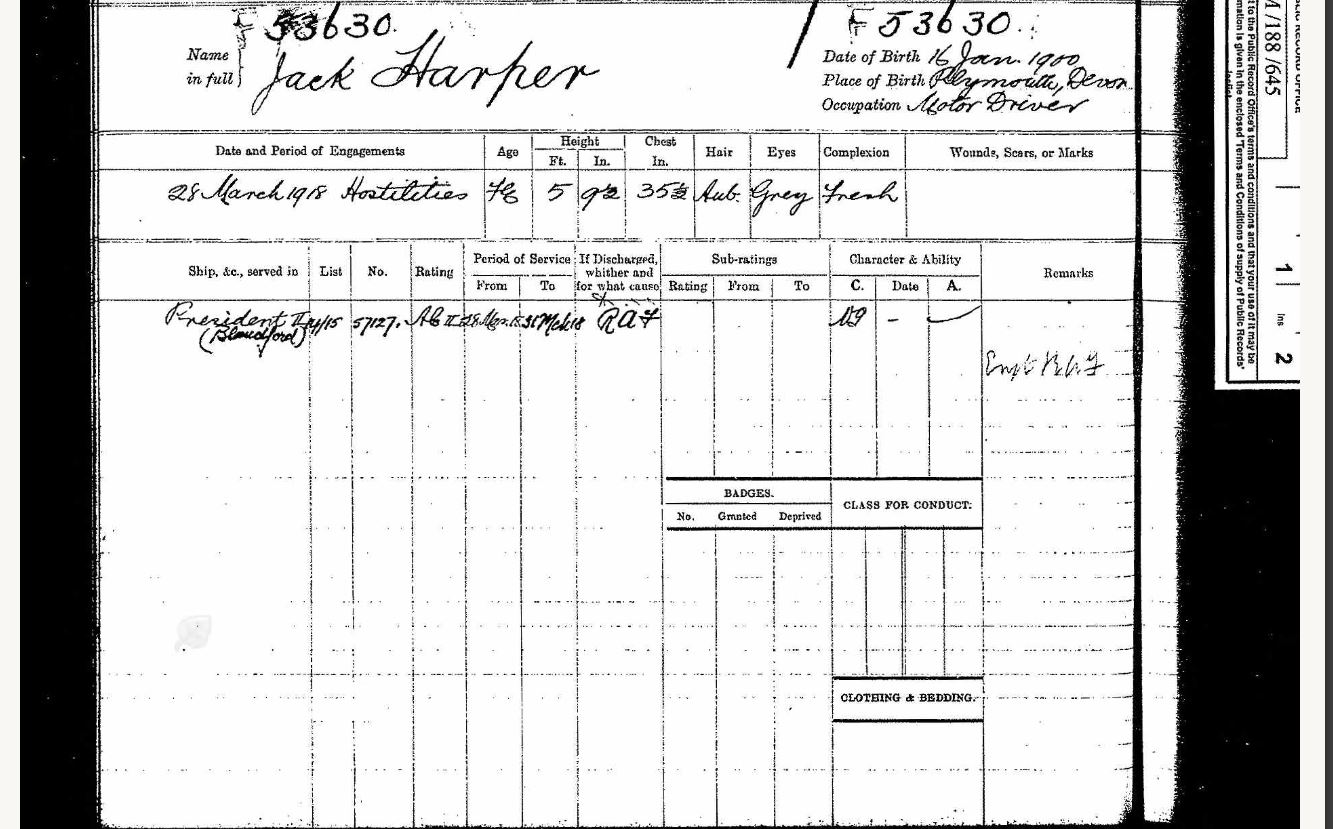 F 53630. F 53630.
Name in full Jack Harper
Date of Birth 16 Jan. 1900
Place of Birth Plymouth, Devon
Occupation Motor Driver
Date and Period of Engagements Age Height Ft. In. Chest In. Hair Eyes Complexion Wounds, Scars, or Marks
28 March 1918 Hostilities 5 9½ 35½ Aub. Grey Fresh
Ship, &c., served in List No. Rating Period of Service From To If Discharged, whither and for what cause Sub-ratings Rating From To Character & Ability C. Date A. Remarks
President II 57127. 31 Mch 18 RAF VG –
(Blandford)
RAF
BADGES.
No. Granted Deprived
CLASS FOR CONDUCT.
CLOTHING & BEDDING.
/188 /645
PUBLIC RECORD OFFICE
t to the Public Record Office's terms and conditions and that your use of it may be
mation is given in the enclosed 'Terms and Conditions of supply of Public Records'
leaflet
1
ins
2